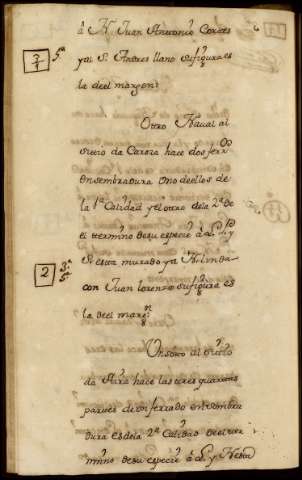 à N. Juan Antonio Cortes
y al S. Andres llano su figura es
la del margen
3/4 5ª
Otro Naval al
sitio da Careia hace dos ferrdos
ensembradura Uno deellos de
la 1ª Calidad y el otro dela 2ª de
el termino desu especie à L. y P.
S. esta murado y a N. linda
con Juan lorenzo su figura es
la del margn
2 3ª 5ª
Un soto al sitio
da Aira hace las tres quartas
partes de un ferrado ensembra
dura es dela 2ª Calidad del ter
mino desu especie à L. y Nesta